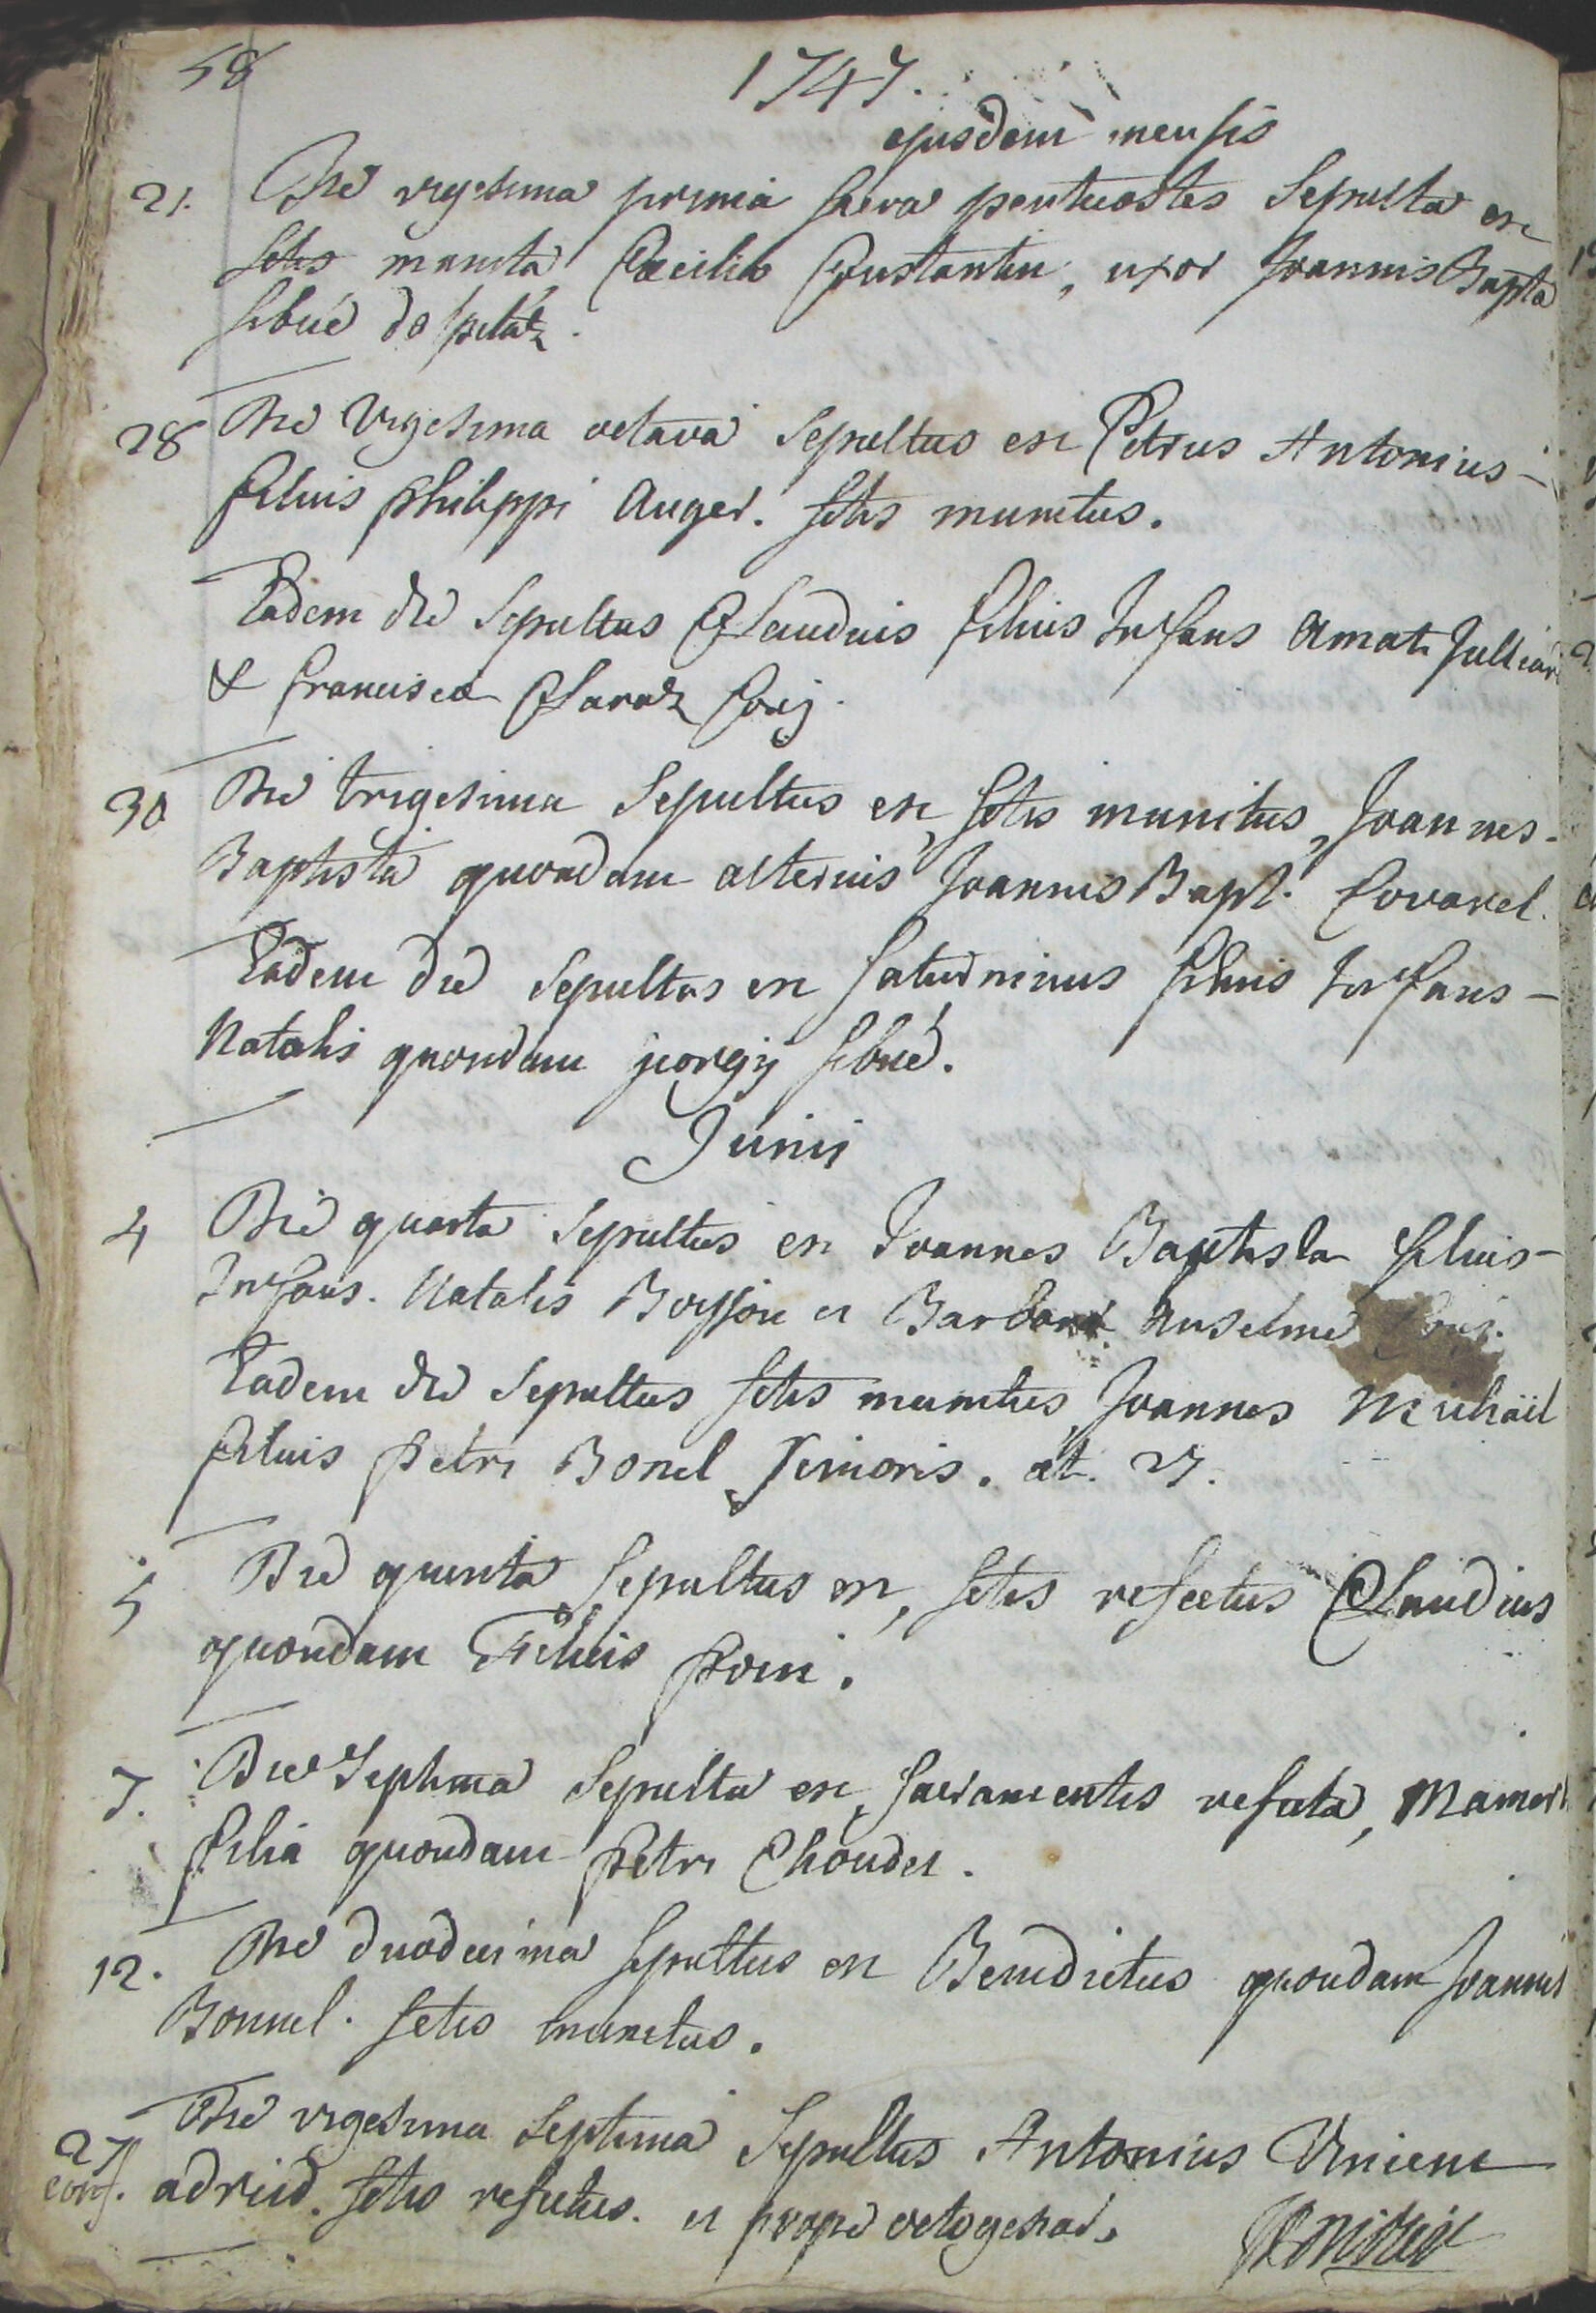 58
1747.
ejusdem mensis
21. Die vigesima prima sacra pentecostes Sepulta est
sctis munita, Cæcilia Constantin, uxor Joannis Bapta
sibué
28 Die Vigesima octava sepultus est Petrus Antonius -
filius philippi Auger. sctis munitus.
Eadem die sepultus Claudius filius Infans Amati
& francisca Claraz Conj.
30 Die trigesima Sepultus est, sctis munitus, Joannes -
Baptista quondam alterius Joannis Bapt.
Eadem die sepultus est Saturninus filius Infans -
Natalis quondam georgij sibué.
Junij
4 Die quarta sepultus est Joannes Baptista filius -
Infans. Natalis Boysson et Barbara Anselme Conj.
Eadem die sepultus sctis munitus, Joannes Michaël
filius petri Bonel, Junioris. æt. 27.
5 Die quinta, sepultus est, sctis refectus Claudius
quondam
7. Die Septima sepulta est, sacramentis refecta,
filia quondam Petri Choudet.
12. Die duodecima sepultus est Benedictus quondam Joannis
Bonnel. sctis munitus.
27 Die vigesima septima Sepultus Antonius
conf. sctis refectus. et prope